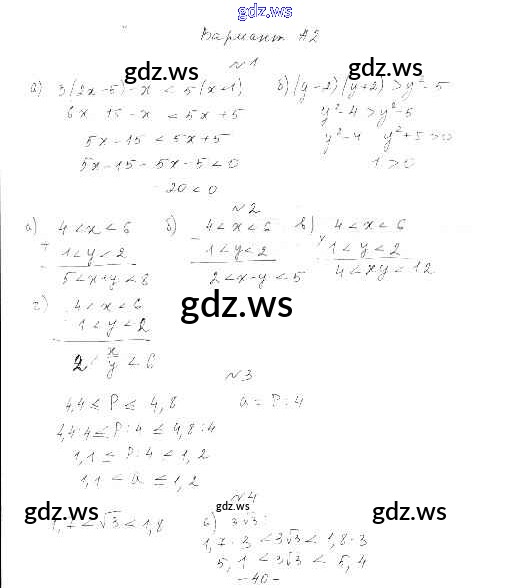 gdz.ws
Вариант А2
№1
а) 3(2x-5)-x < 5(x+1) б) (y-2)(y+2) > y²-5
6x 15-x < 5x+5 y²-4 > y²-5
5x-15 < 5x+5 y²-4 y²+5 > 0
5x-15-5x-5 < 0 1 > 0
-20 < 0
gdz.ws gdz.ws
№2
а) 4 < x < 6 б) 4 < x < 6 в) 4 < x < 6
+ 1 < y < 2 - 1 < y < 2 × 1 < y < 2
5 < x+y < 8 2 < x-y < 5 4 < xy < 12
г) 4 < x < 6
1 < y < 2
2 < x/y < 6
gdz.ws
№3
4,4 ≤ P ≤ 4,8 a = P:4
4,4:4 ≤ P:4 ≤ 4,8:4
1,1 ≤ P:4 ≤ 1,2
1,1 ≤ a ≤ 1,2
№4
gdz.ws gdz.ws gdz.ws
1,7 < √3 < 1,8 б) 3√3:
1,7·3 < 3√3 < 1,8·3
5,1 < 3√3 < 5,4
-40-
gdz.ws